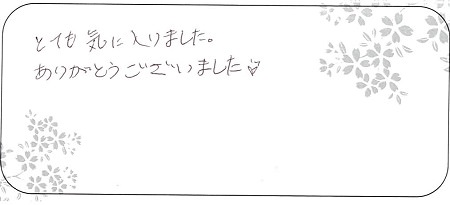 とても気に入りました。
ありがとうございました♡